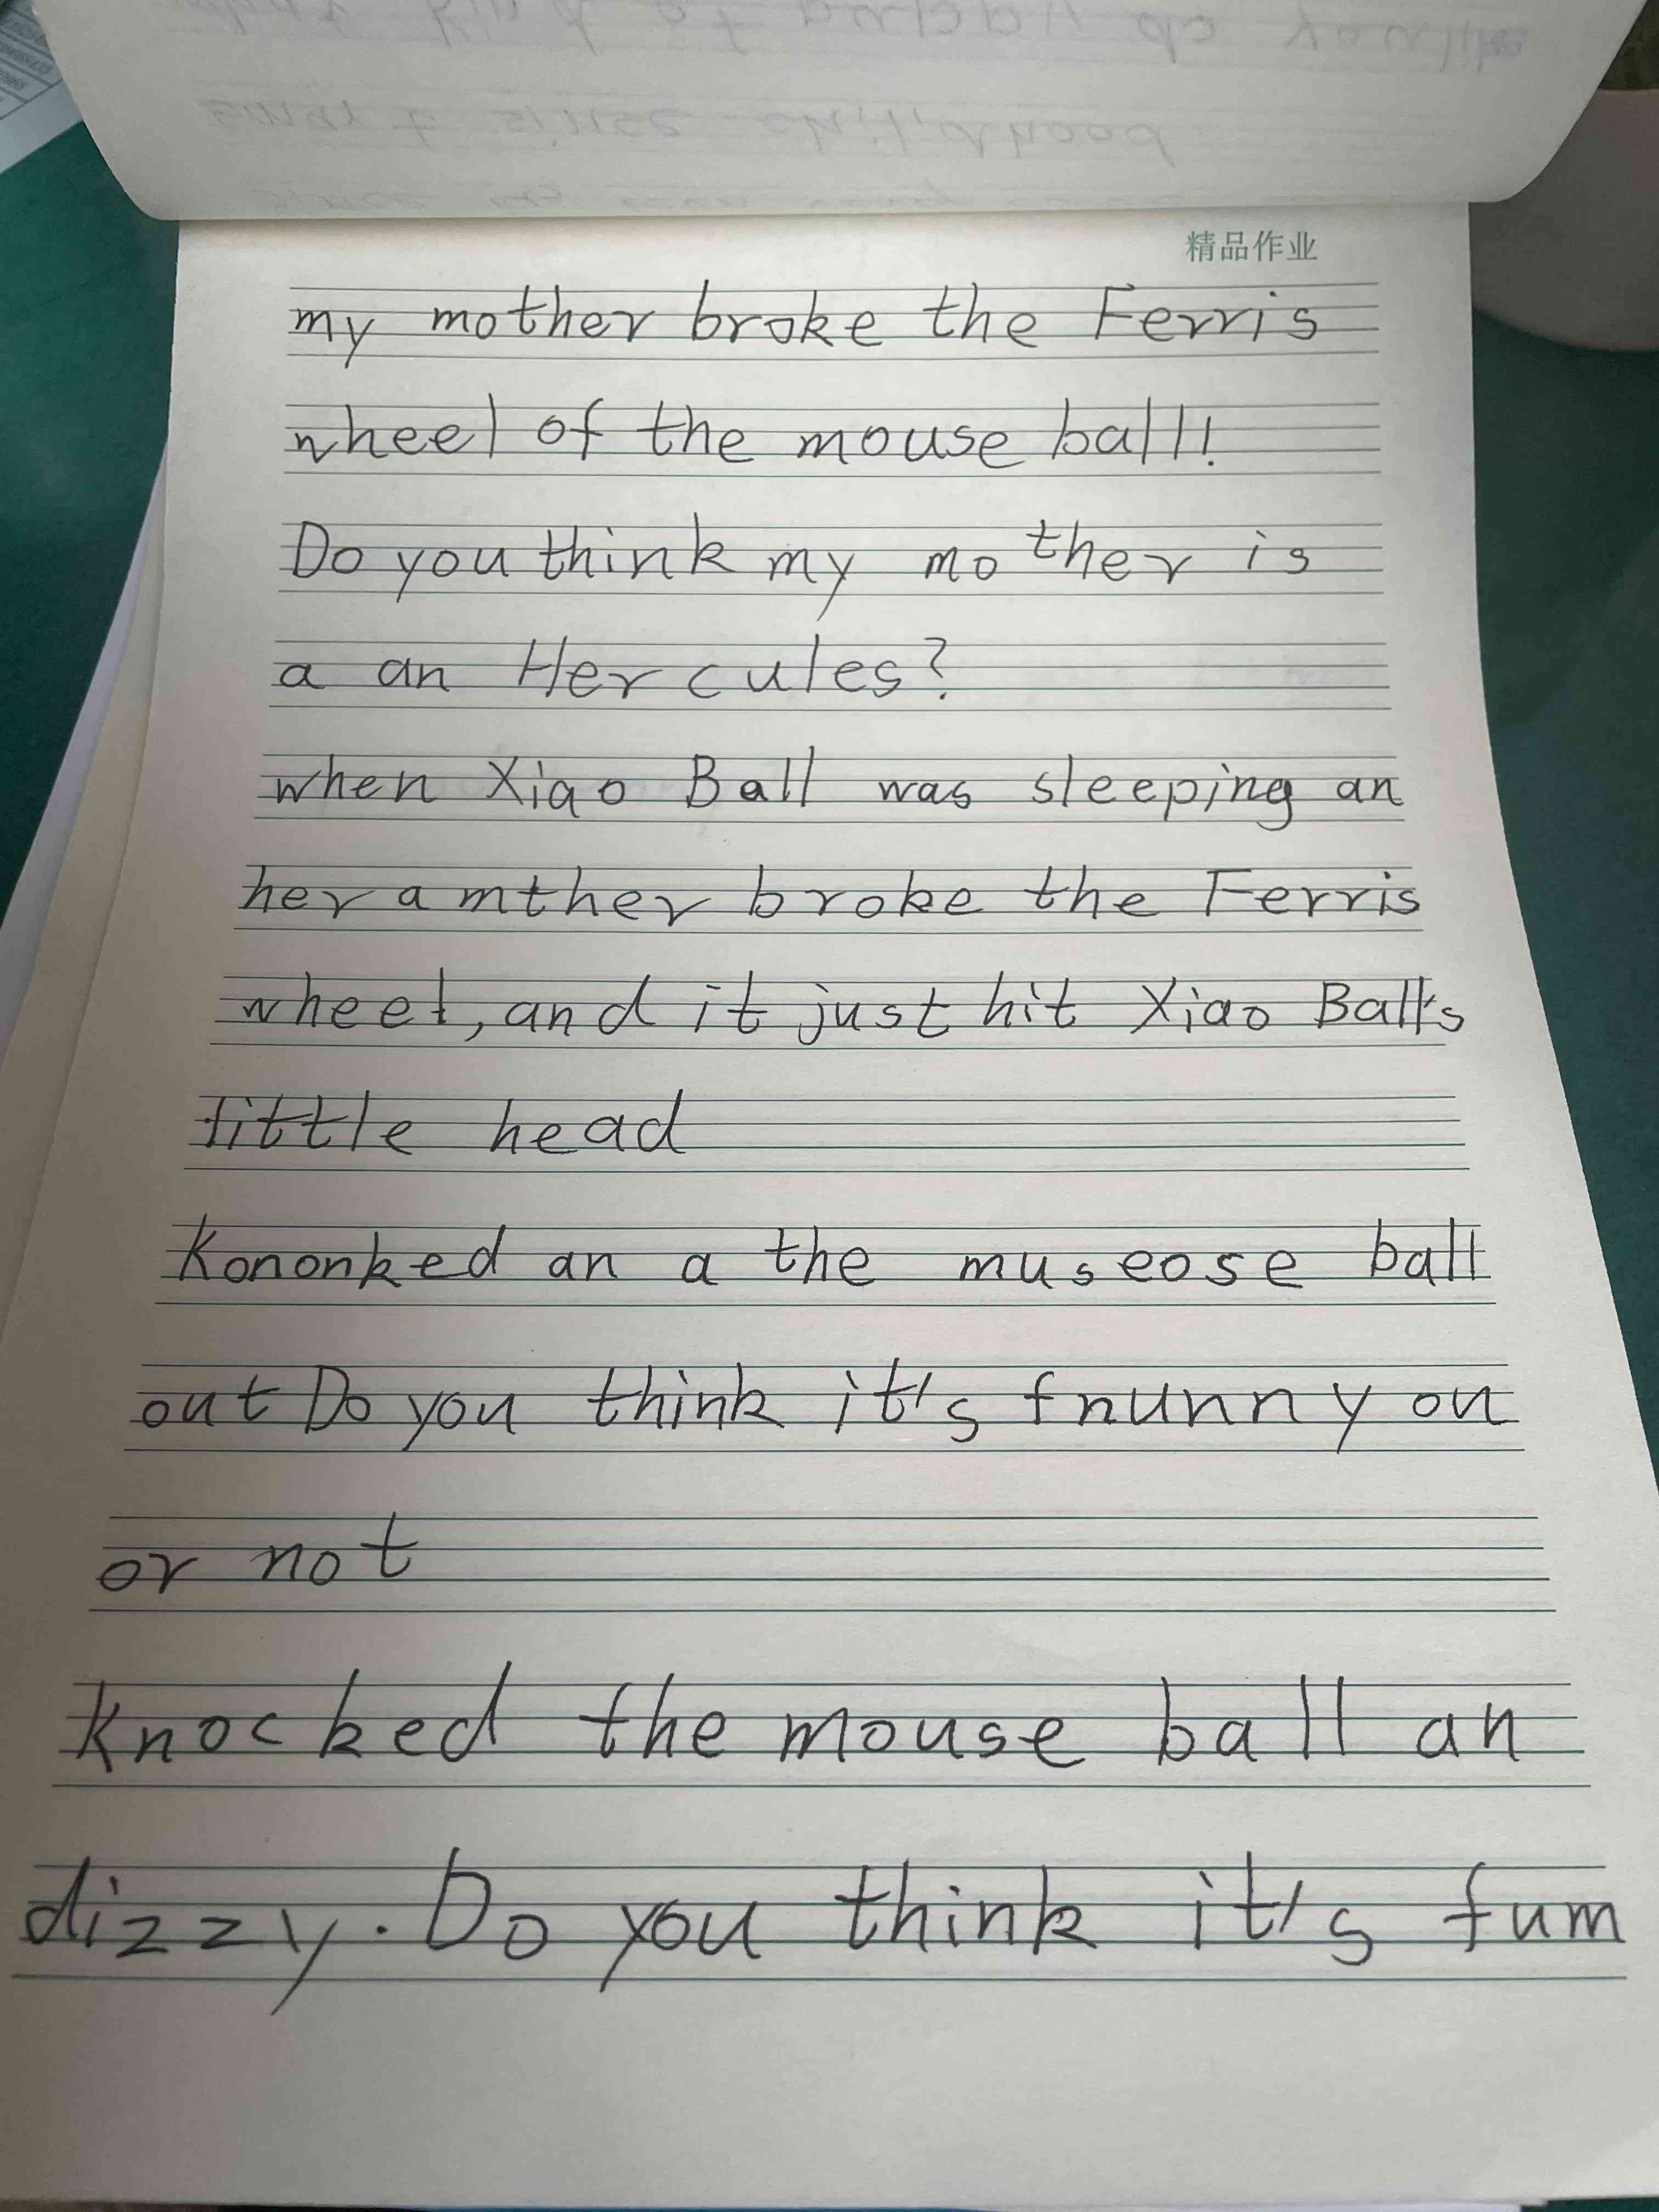 what kind of puppy do you like
smart since childhood
精品作业
my mother broke the Ferris
wheel of the mouse ball!
Do you think my mother is
a an Hercules?
when Xiao Ball was sleeping an
her a mther broke the Ferris
wheel, and it just hit Xiao Ball's
little head
Kononked an a the museose ball
out Do you think it's fnunny on
or not
Knocked the mouse ball an
dizzy. Do you think it's fum